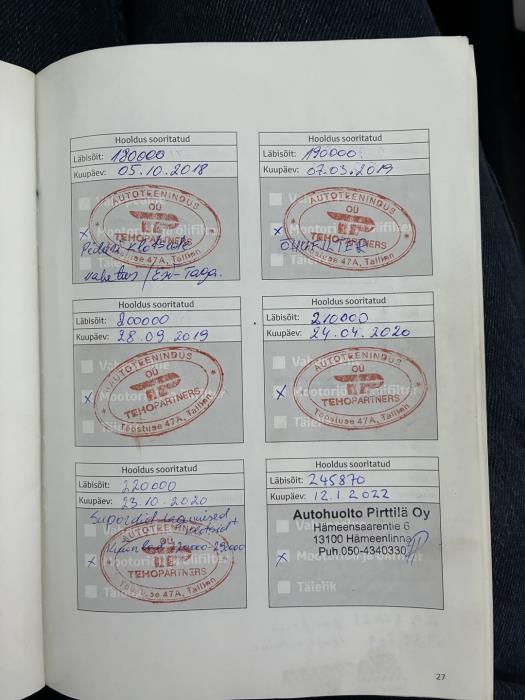 Hooldus sooritatud
Läbisõit: 180000
Kuupäev: 05.10.2018
AUTOTEENINDUS
OÜ
TP
TEHOPARTNERS
Tööstuse 47A, Tallinn
x
Piduri klotside
vahetus / Esi-Taga.
Hooldus sooritatud
Läbisõit: 190000
Kuupäev: 07.03.2019
AUTOTEENINDUS
OÜ
TP
TEHOPARTNERS
Tööstuse 47A, Tallinn
x
ÕHUFILTER
Hooldus sooritatud
Läbisõit: 200000
Kuupäev: 28.09.2019
AUTOTEENINDUS
OÜ
TP
TEHOPARTNERS
Tööstuse 47A, Tallinn
x Mootoriõli
Hooldus sooritatud
Läbisõit: 210000
Kuupäev: 24.04.2020
AUTOTEENINDUS
OÜ
TP
TEHOPARTNERS
Tööstuse 47A, Tallinn
x
Täielik
Hooldus sooritatud
Läbisõit: 220000
Kuupäev: 23.10.2020
OÜ
TEHOPARTNERS
Tööstuse 47A, Tallinn
x
Hooldus sooritatud
Läbisõit: 245870
Kuupäev: 12.1 2022
Autohuolto Pirttilä Oy
Hämeensaarentie 6
13100 Hämeenlinna
Puh.050-4340330
x
Täielik
27